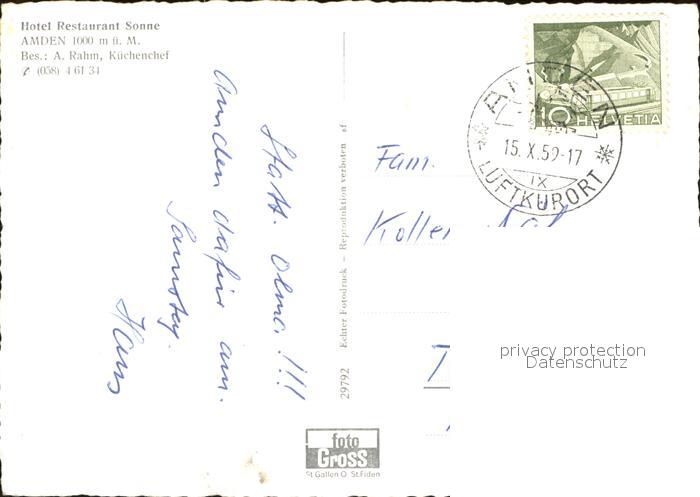 Hotel Restaurant Sonne
AMDEN 1000 m ü. M.
Bes.: A. Rahm, Küchenchef
✆ (058) 4 61 34
Statt. Olma. !!!
Amden dafür am.
Samstag.
Hans
29792 Echter Fotodruck – Reproduktion verboten af
foto
Gross
St Gallen O St.Fiden
10 HELVETIA
AMDEN
15.X.59-17
IX
LUFTKURORT
Fam.
privacy protection
Datenschutz